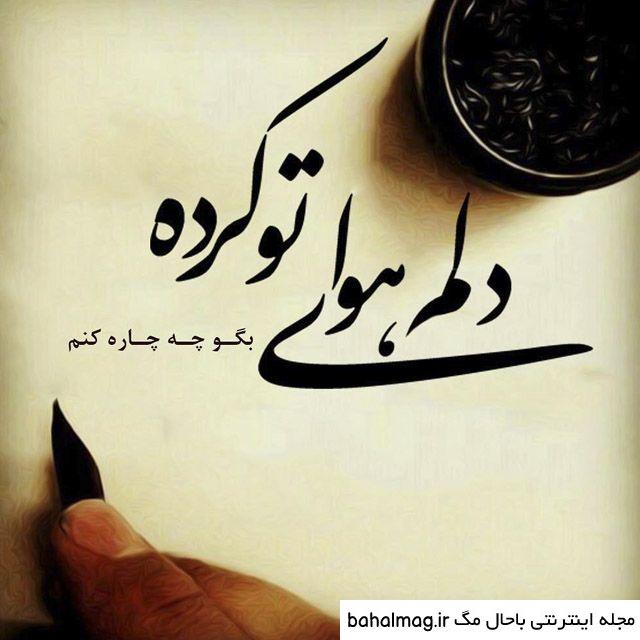 دلم هوای تو کرده
بگو چه چاره کنم
مجله اینترنتی باحال مگ bahalmag.ir